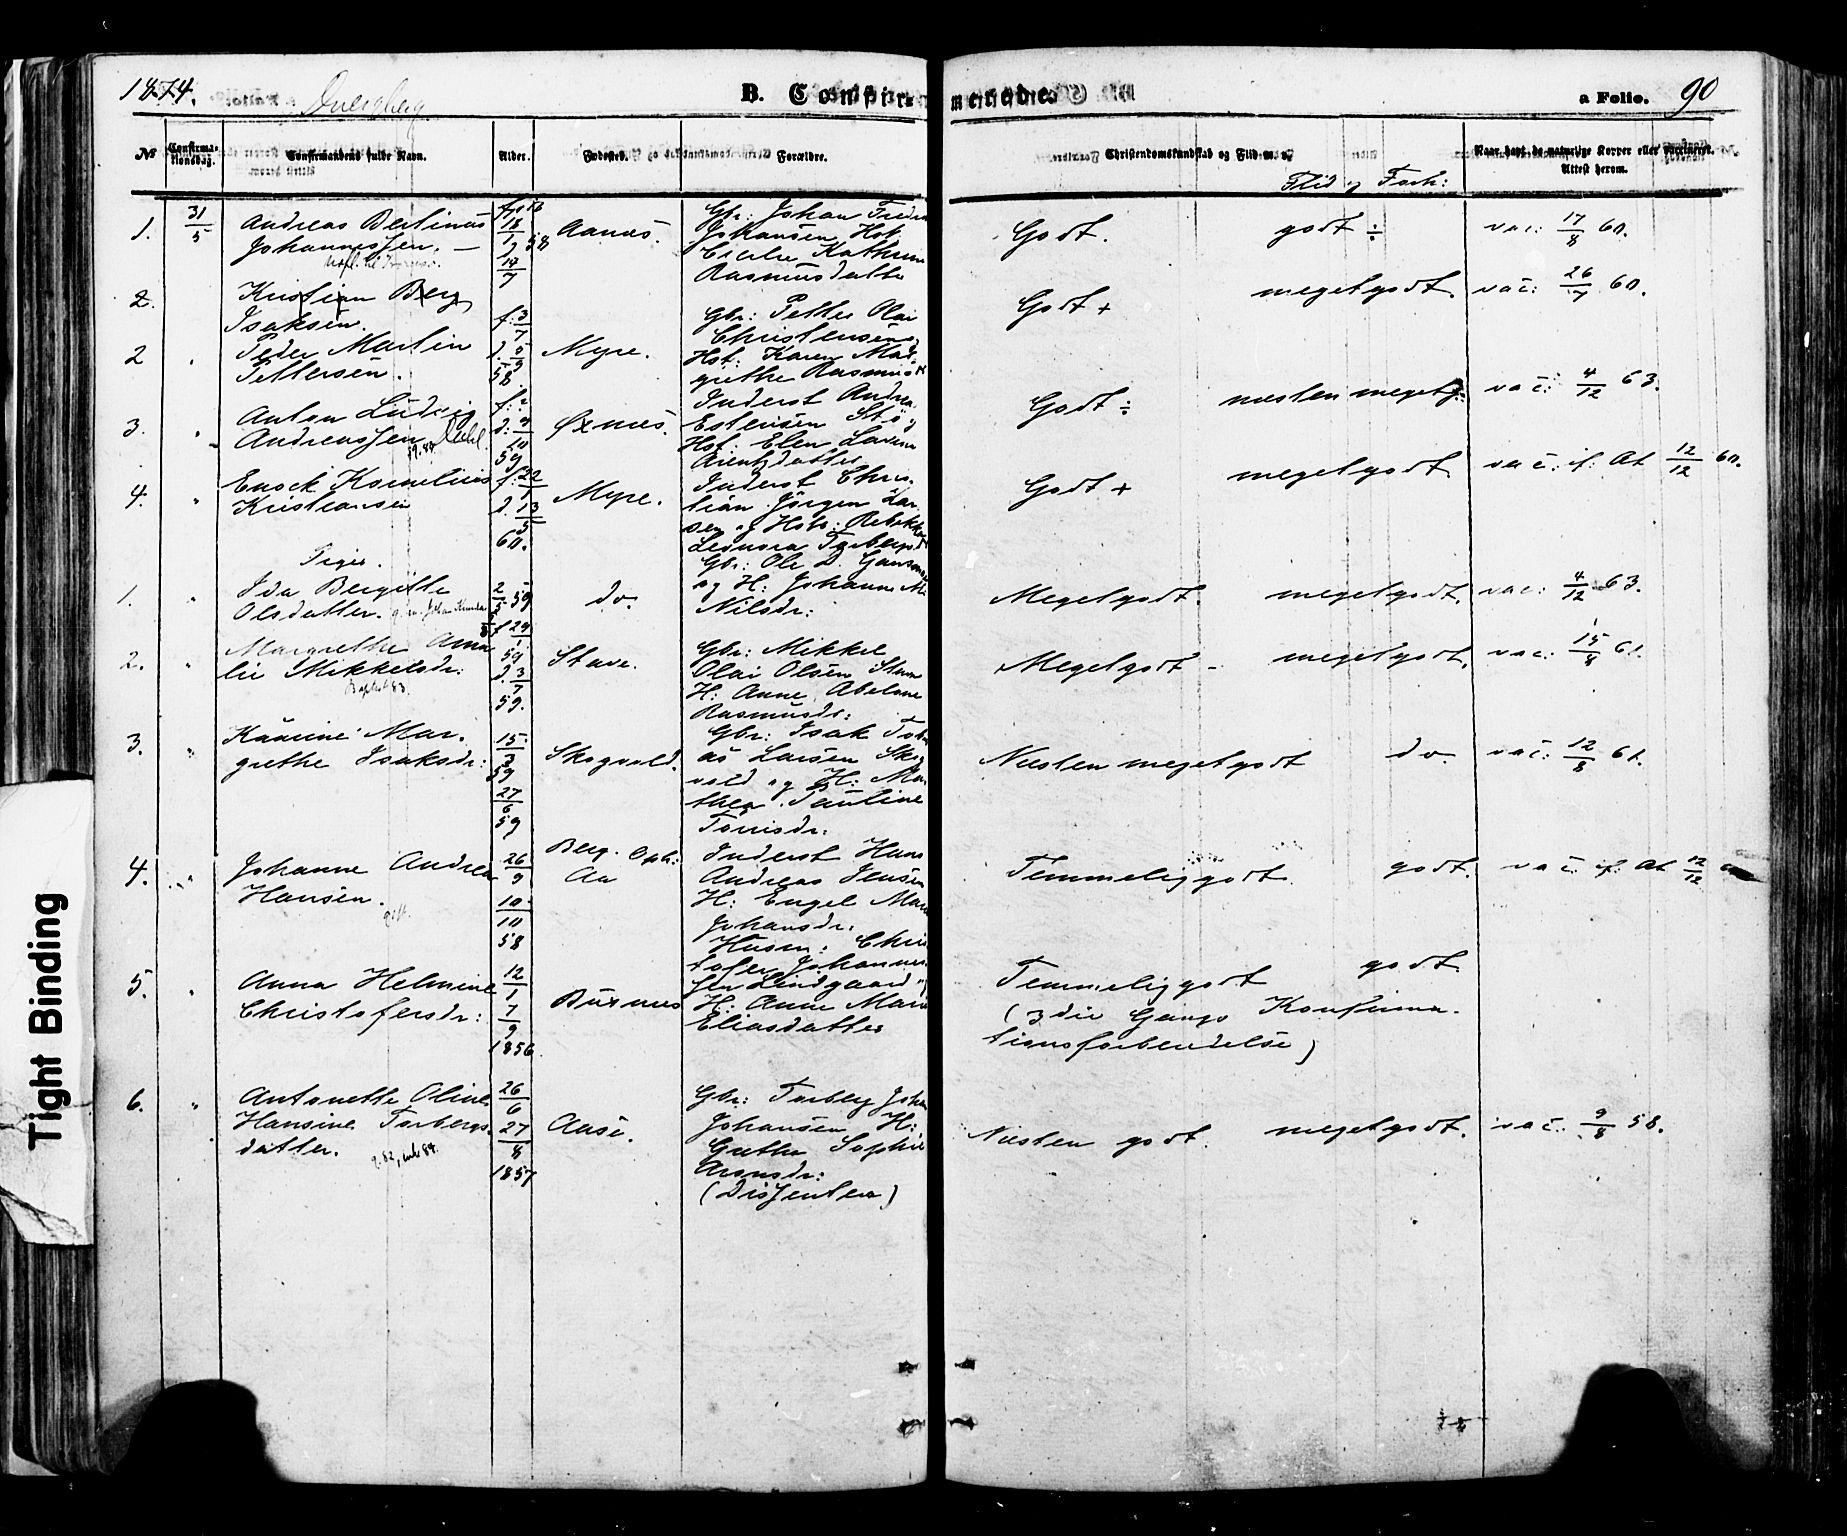 1874.
Dverberg
B. Confir-
merede.
a Folio.
90
№
Confirma-
tionsdag.
Confirmandens fulde Navn.
Alder.
Fødested.
Forældre.
Christendomskundskab og Flid m. v.
Flid og Forh:
Naar havt de naturlige Kopper eller vaccineret.
Attest herom.
1.
31
5
Andreas Bertinus
Johannessen.
18
1
58
14
7
Aanæs.
Gbr: Johan Fredr
Johansen Hst.
Cecilie Kathrine
Rasmusdatter
Godt.
godt ÷
vac: 17/8 60.
2.
Kristian Berg
Isaksen.
Godt +
megetgodt.
vac: 26/7 60.
2
Peder Martin
Pettersen.
f: 3
7
d. 5
9
58.
Myre.
Gbr: Petter Olai
Christensen
Hst: Karen Mar-
grethe Rasmusdr
3.
Anton Ludvig
Andreassen Dahl
f: 2
d: 4
10
59
Øxnæs.
Inderst Andrea
Estensen Stø og
Hst. Elen Lavina
Arentzdatter
Godt ÷
næsten megetg:
vac: 4/12 63.
4.
Enock Kornelius
Kristiansen
f: 22
1
d. 13
5
60.
Myre.
Inderst Chris-
tian Jörgen Lar-
sen og Hst: Rebekka
Leonora Torbergsdr
Godt +
megetgodt
vac: if: At 12/12 60.
Piger.
1.
Ida Bergitte
Olsdatter.
2
5 59
do.
Gbr: Ole D.
og H: Johanna M
Nilsdr:
Megetgodt.
megetgodt.
vac: 4/12 63.
2.
Margrethe Ama-
lie Mikkelsdr.
Baptist 83.
f 29
1
59
d. 3
7
59.
Stave.
Gbr: Mikkel
Olai Olsen Stave
H: Anne Abelone
Rasmusdr:
Megetgodt -
megetgodt.
vac: 15/8 61.
3.
Kaarine Mar-
grethe Isaksdr:
15
3
59
27
6
59
Skogvold.
Gbr: Isak Tob
as Larsen Skog
vold og H: Mar
thea Pauline
Tönisdr:
Næsten megetgodt
do.
vac: 12/8 61.
4.
Johanne Andrea
Hansen.
gift.
26
9
10
10
58
Berg. Oph:
Aa
Inderst Hans
Andreas Jensen
H: Engel Mar
Johansdr:
Temmeliggodt.
godt.
vac. if. At 12/12
5.
Anna Helmine
Christofersdr:
12
1
7
9
1856.
Busnes
Husm: Chris
tofer Johannes
sen Lindgaard og
H: Anne Marie
Eliasdatter
Temmeliggodt
godt
(3die Gangs Konfirma-
tionsforberedelse)
6.
Antonette Oline
Hansine Torbergs-
datter.
26
6
27
8
1857
Aase.
Gbr: Torberg Johan
Johansen H:
Grethe Sophie
Aronsdr:
(Dissentere)
Næsten godt.
megetgodt.
vac. 9/8 58.
Tight Binding